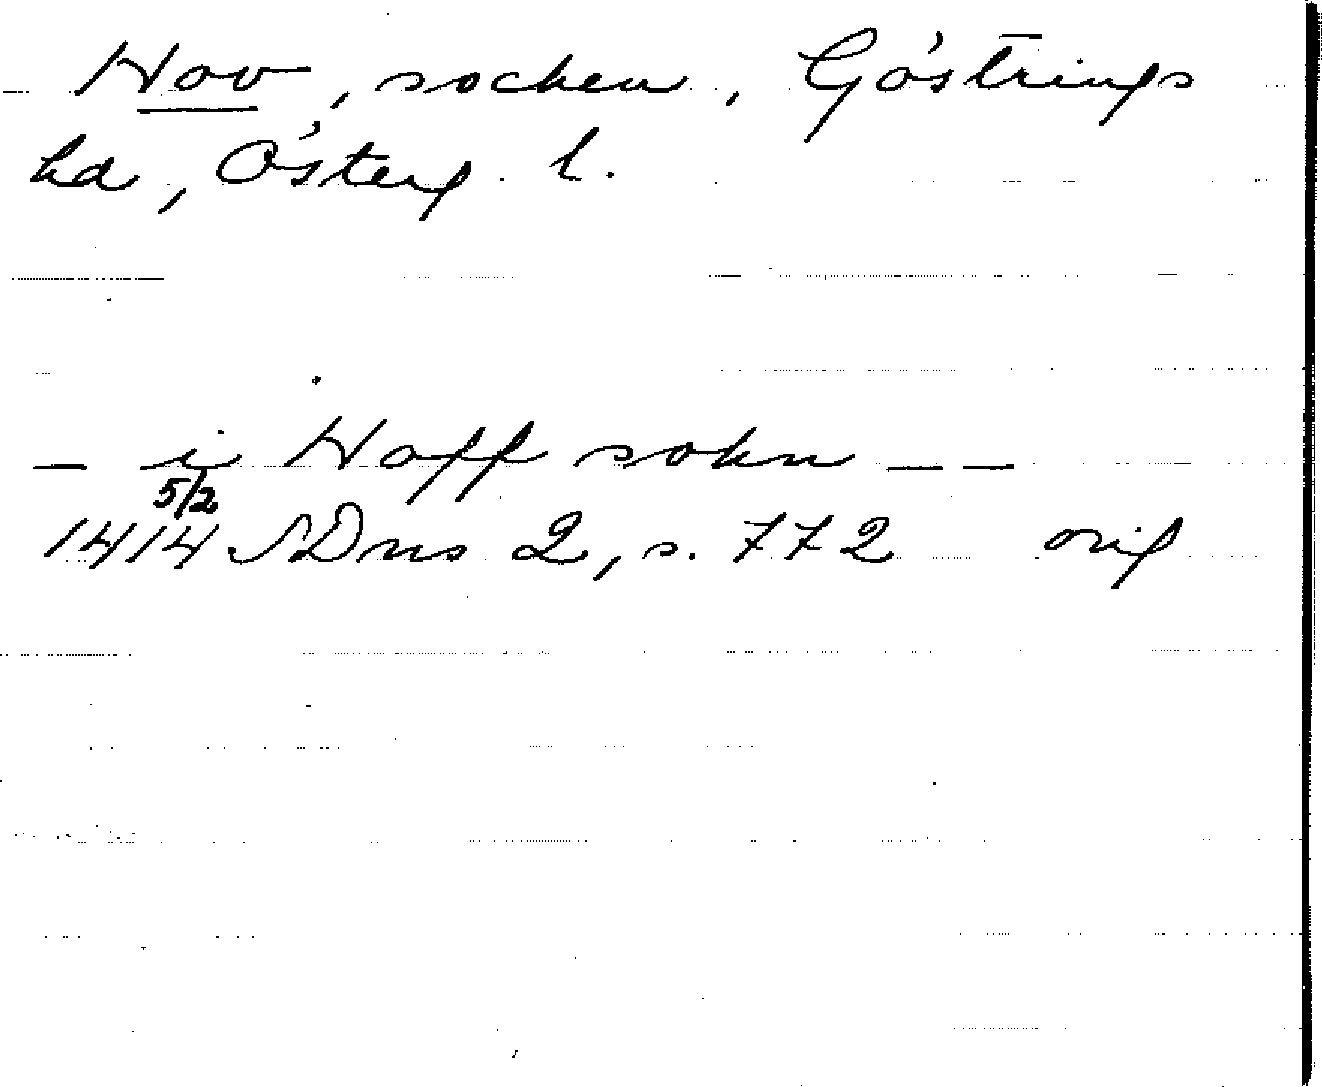 Hov, socken, Göstrings
hd, Österg. l.
— i Hoff sokn — —
5/2
1414 SDns 2, s. 772 orig